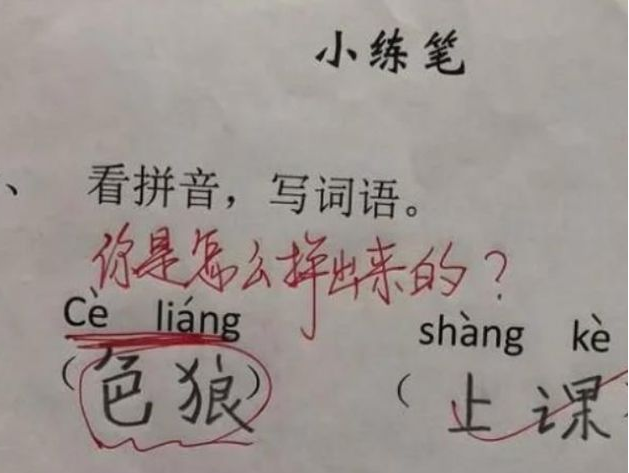 小练笔
、 看拼音，写词语。
你是怎么拼出来的？
Cè liáng shàng kè
（色狼）（上课